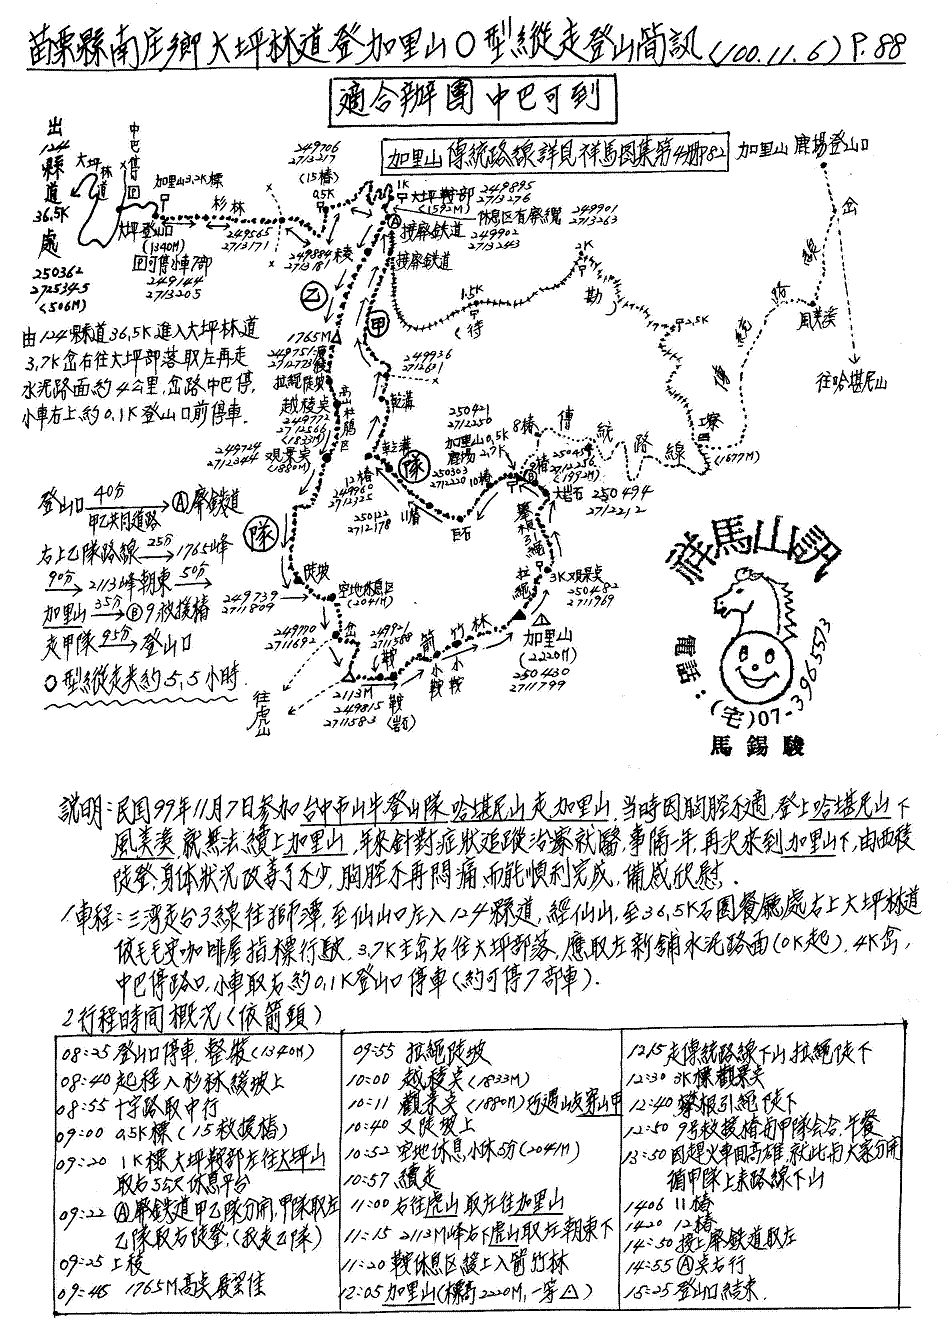 苗栗縣南庄鄉大坪林道登加里山O型縱走登山簡訊(100.11.6) P.88
適合辦團中巴可到
加里山傳統路線詳見祥馬圖集第4冊P82
加里山鹿場登山口
出124縣道36.5K處
250362
2725345
(506M)
大坪林道
中巴停
加里山3.2K標
大坪登山口
(1340M)
可停小車7部
249144
2713205
杉林
249565
2713171
249706
2713217
(15樁)
0.5K
249884
2713181
1K
大坪鞍部
(1592M)
249895
2713276
休息区有廢纜
249901
2713263
A
接廢鉄道
249902
2713243
接廢鉄道
2K
1.5K
2.5K
岔
風美溪
往哈堪尼山
工寮
(1677M)
傳統路線
乙
甲
隊
隊
1765M
249936
2712631
乾溝
乾溝
拉繩陡坡
越稜尖
249772
2712566
(1833M)
高山杜鵑区
249724
2712344
觀景尖
(1880M)
12樁
249960
2712325
11樁
250122
2712178
250303
2712220
10樁
巨石
250421
2712250
加里山0.5K
鹿場2.7K
8樁
9樁
B
2712256
(1992M)
大岩石
250494
2712212
攀根引繩
拉繩
3K觀景尖
250482
2711969
加里山
(2220M)
250430
2711799
陡坡
249739
2711809
空地休息区
(2041M)
249770
2711692
岔
249921
2711588
鞍
箭竹林
小鞍
小鞍
2113M
249815
2711583
鞍
(岩石)
往虎山
由124縣道36.5K進入大坪林道
3.7K岔右往大坪部落取左再走
水泥路面約4公里,岔路中巴停,
小車右上約0.1K登山口前停車.
登山口 40分 → A廢鉄道
甲乙共同道路
右上乙隊路線 25分 → 1765峰
90分 → 2113峰朝東 50分 →
加里山 35分 → B9救援樁
走甲隊 95分 → 登山口
O型縱走共約5,5小時.
祥馬山訊
電話:(宅)07-3965573
馬錫駿
說明:民国99年11月7日參加台中市山半登山隊哈堪尼山走加里山,當時因胸腔不適,登上哈堪尼山下
風美溪,就無法續上加里山,年來針對症狀追蹤治療就醫,事隔一年,再次來到加里山下,由西稜
陡登,身体狀況改善了不少,胸腔不再悶痛,而能順利完成,備感欣慰.
1車程:三湾走台3線往獅潭,至仙山口左入124縣道,經仙山,至36,5K石園餐廳處右上大坪林道
依毛毛虫咖啡屋指標行駛,3.7K主岔右往大坪部落,應取左新鋪水泥路面(0K起),4K岔,
中巴停路口,小車取右約0,1K登山口停車(約可停7部車).
2行程時間概況(依箭頭)
08:25 登山口停車,整裝(1340M)
08:40 起程入杉林緩坡上
08:55 十字路取中行
09:00 0.5K標(15救援樁)
09:20 1K標大坪鞍部左往大坪山
取右55尺休息平台
09:22 A廢鉄道甲乙隊分開,甲隊取左
乙隊取右陡登,(我走乙隊)
09:25 上稜
09:45 1765M高尖展望佳
09:55 拉繩陡坡
10:00 越稜尖(1833M)
10:11 觀景尖(1880M)巧遇山友穿山甲
10:40 又陡坡上
10:52 空地休息,小休5分(2041M)
10:57 續走
11:00 右往虎山取左往加里山
11:15 2113M峰右下虎山取左朝東下
11:20 鞍休息区緩上入箭竹林
12:05 加里山(標高2220M,一等△)
1215 走傳統路線下山拉繩陡下
12:30 3K標觀景尖
12:40 攀根引繩陡下
12:50 9号救援樁与甲隊会合,午餐
13:50 因趕火車回高雄,就此与大家分開
循甲隊上來路線下山
1406 11樁
1420 12樁
14:50 接上廢鉄道取左
14:55 A尖右行
15:25 登山口結束.